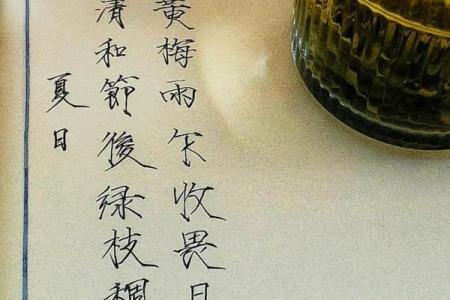 黄梅雨乍收畏日
清和節後緑枝稠
夏日